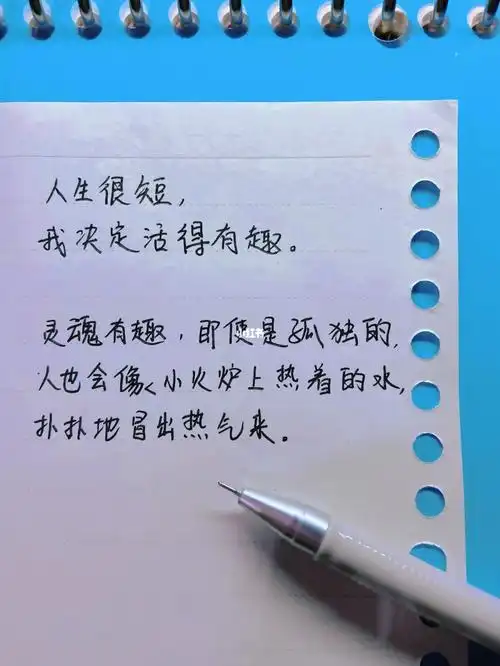 人生很短,
我决定活得有趣。
灵魂有趣,即使是孤独的,
人也会像小火炉上热着的水,
扑扑地冒出热气来。
小红书